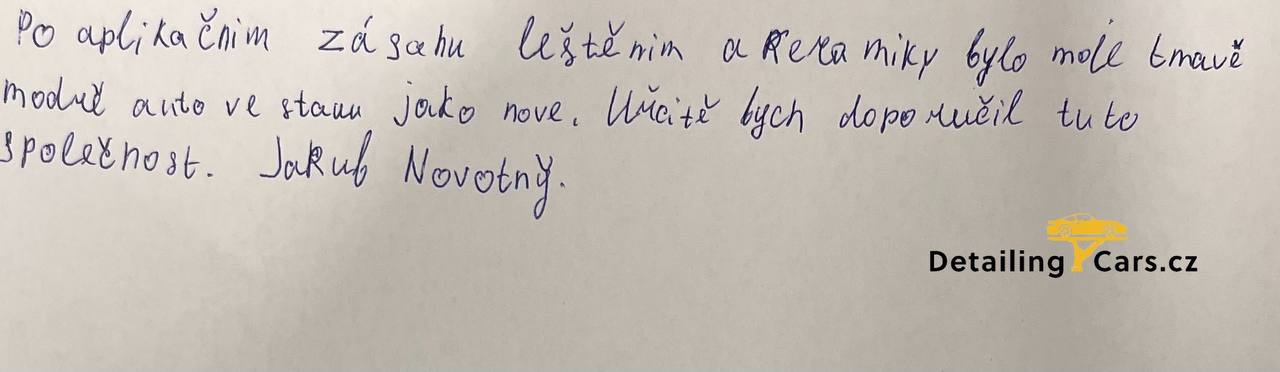 Po aplikačnim zásahu leštěnim a keramiky bylo moje tmavě
modué auto ve stavu jako nove. Určitě bych doporučil tuto
společnost. Jakub Novotný.
DetailingCars.cz